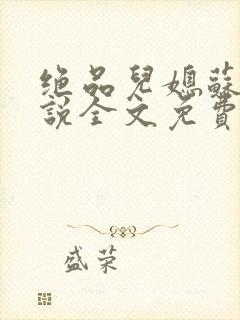 绝品兒媳蘇
說全文免費
盛荣